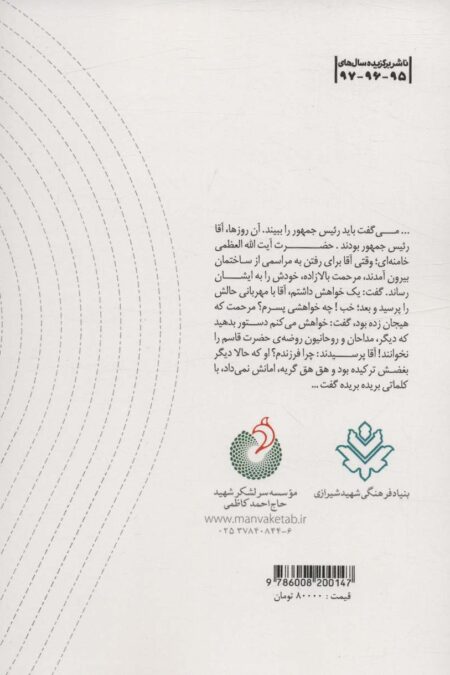 ناشر برگزیده سال‌های
۹۵-۹۶-۹۷
... می‌گفت باید رئیس جمهور را ببیند. آن روزها، آقا
رئیس جمهور بودند . حضرت آیت الله العظمی
خامنه‌ای؛ وقتی آقا برای رفتن به مراسمی از ساختمان
بیرون آمدند، مرحمت بالازاده، خودش را به ایشان
رساند. گفت: یک خواهش داشتم، آقا با مهربانی حالش
را پرسید و بعد؛ خب ! چه خواهشی پسرم؟ مرحمت که
هیجان زده بود، گفت: خواهش می کنم دستور بدهید
که دیگر، مداحان و روحانیون روضه‌ی حضرت قاسم را
نخوانند! آقا پرسیدند: چرا فرزندم؟ او که حالا دیگر
بغضش ترکیده بود و هق هق گریه، امانش نمی‌داد، با
کلماتی بریده بریده گفت ...
بنیاد فرهنگی شهید شیرازی
مؤسسه سرلشکر شهید
حاج احمد کاظمی
www.manvaketab.ir
۰۲۵ ۳۷۸۴۰۸۴۴-۶
9 786008 200147
قیمت : ۸۰۰۰۰ تومان